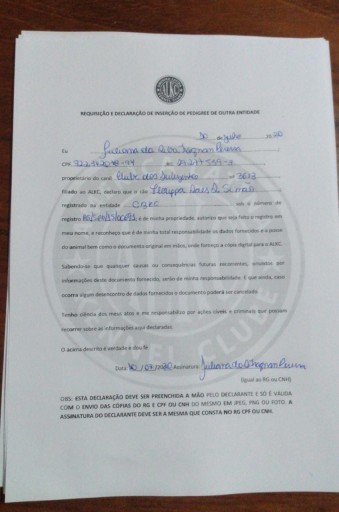 ALKC
REQUISIÇÃO E DECLARAÇÃO DE INSERÇÃO DE PEDIGREE DE OUTRA ENTIDADE
30 de Julho de 20
Eu Juliana da Silva
CPF RG
proprietária do canil
filiado ao ALKC, declaro que o cão
registrado na entidade com o número de
registro é de minha propriedade, autorizo que seja feito o registro em
meu nome, e reconheço que é de minha total responsabilidade os dados fornecidos e a posse
do animal bem como o documento original em mãos, onde forneço a cópia digital para o ALKC.
Sabendo-se que qualquer causas ou consequências futuras recorrentes, oriundos por
informações deste documento fornecido, serão de minha responsabilidade. E que ainda, caso
ocorra algum desencontro de dados fornecidos o documento poderá ser cancelado.
Tendo ciência dos meus atos e me responsabilizo por ações civeis e criminais que possam
recorrer sobre as informações aqui declaradas.
O acima descrito é verdade e dou fé
Data Assinatura: Juliana
(igual ao RG ou CNH)
OBS: ESTA DECLARAÇÃO DEVE SER PREENCHIDA A MÃO PELO DECLARANTE E SÓ É VÁLIDA
COM O ENVIO DAS CÓPIAS DO RG E CPF OU CNH DO MESMO EM JPEG, PNG OU FOTO. A
ASSINATURA DO DECLARANTE DEVE SER A MESMA QUE CONSTA NO RG CPF OU CNH.